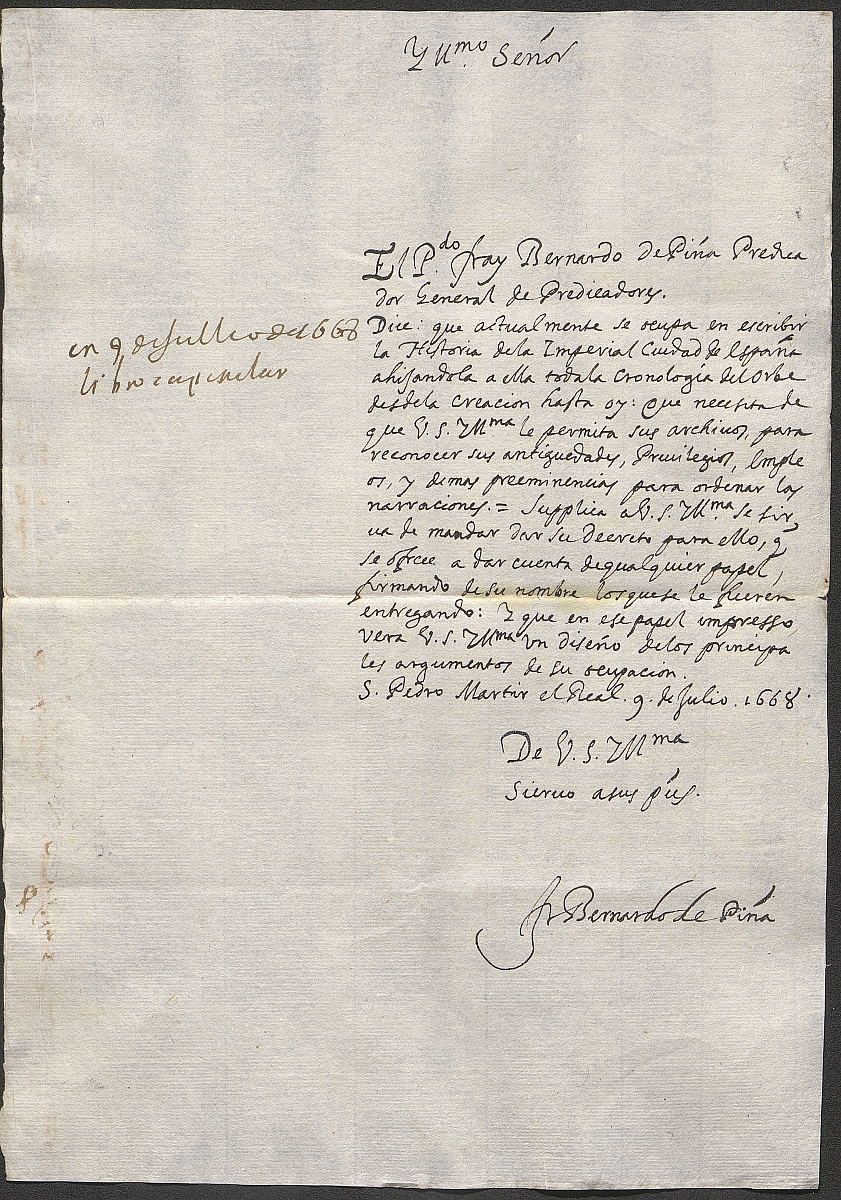 Yll.mo Señor
El P.do fray Bernardo de Piña Predica
dor General de Predicadores.
Dice: que actualmente se ocupa en escribir
la Historia dela Imperial Ciudad de España
ahijandola a ella toda la Cronología del Orbe
desdela Creacion hasta oy: Que necesita de
que V. S. Yllma le permita sus archivos, para
reconocer sus antiguedades, Privilegios, Imple
os, y demas preeminencias para ordenar las
narraciones. = Supplica a V. S. Yll.ma se sir
va de mandar dar su Decreto para ello, q
se ofrece a dar cuenta dequalquier papel,
firmando desu nombre losquese le fueren
entregando: Y que en ese papel impresso,
vera V. S. Yllma vn diseño delos principa
les argumentos de su ocupacion.
S. Pedro Martir el Real. 9. de Julio. 1668.
De V. S. Yllma
Siervo asus pies.
fr Bernardo de Piña
en 9 de Jullio de 1668
libro capitular